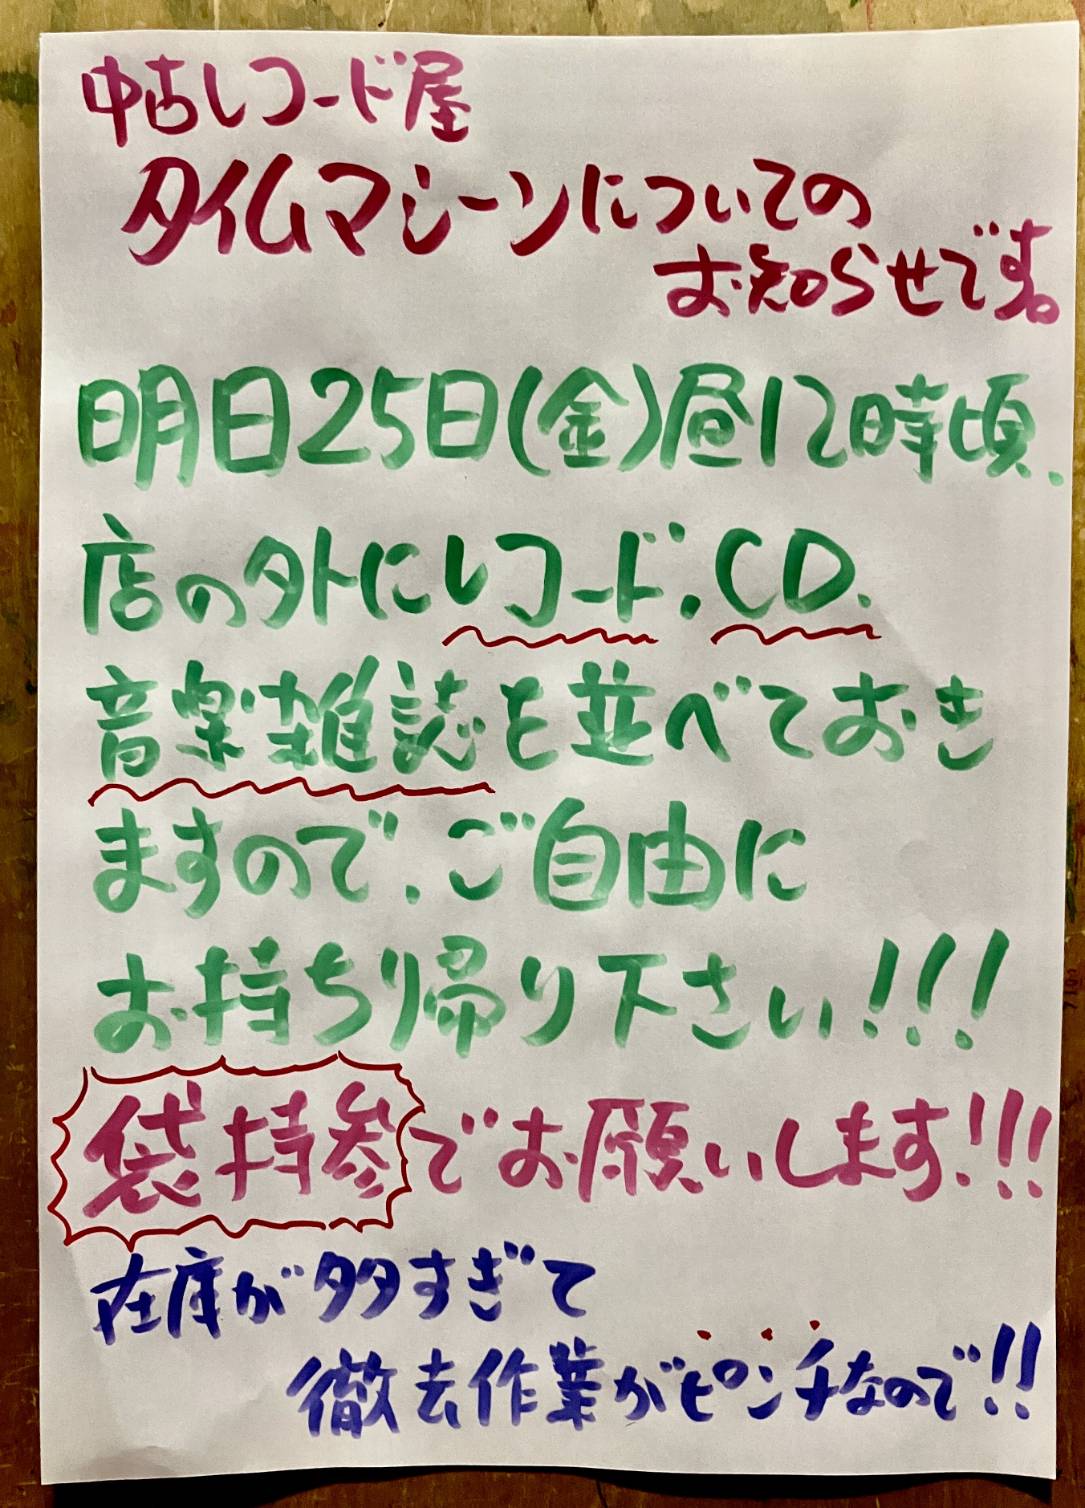 中古レコード屋
タイムマシーンについての
お知らせです。
明日25日(金)昼12時頃、
店の外にレコード、CD、
音楽雑誌を並べておき
ますので、ご自由に
お持ち帰り下さい!!!
袋持参でお願いします!!!
在庫が多すぎて
徹去作業がピンチなので!!